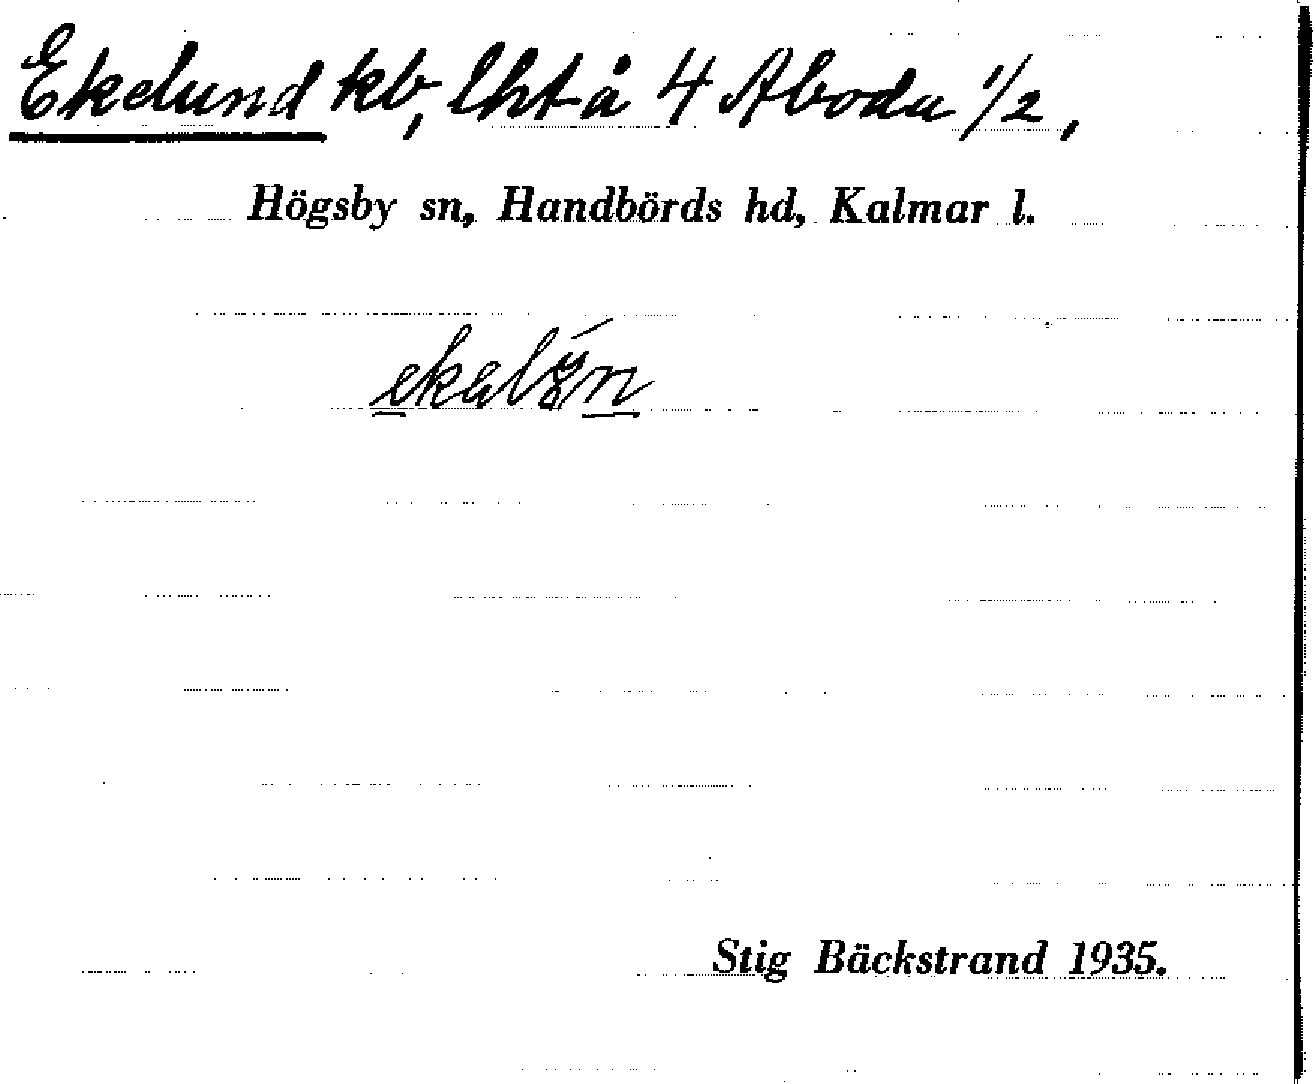 Ekelund kb, lht å 4 Aboda 1/2,
Högsby sn, Handbörds hd, Kalmar l.
Stig Bäckstrand 1935.